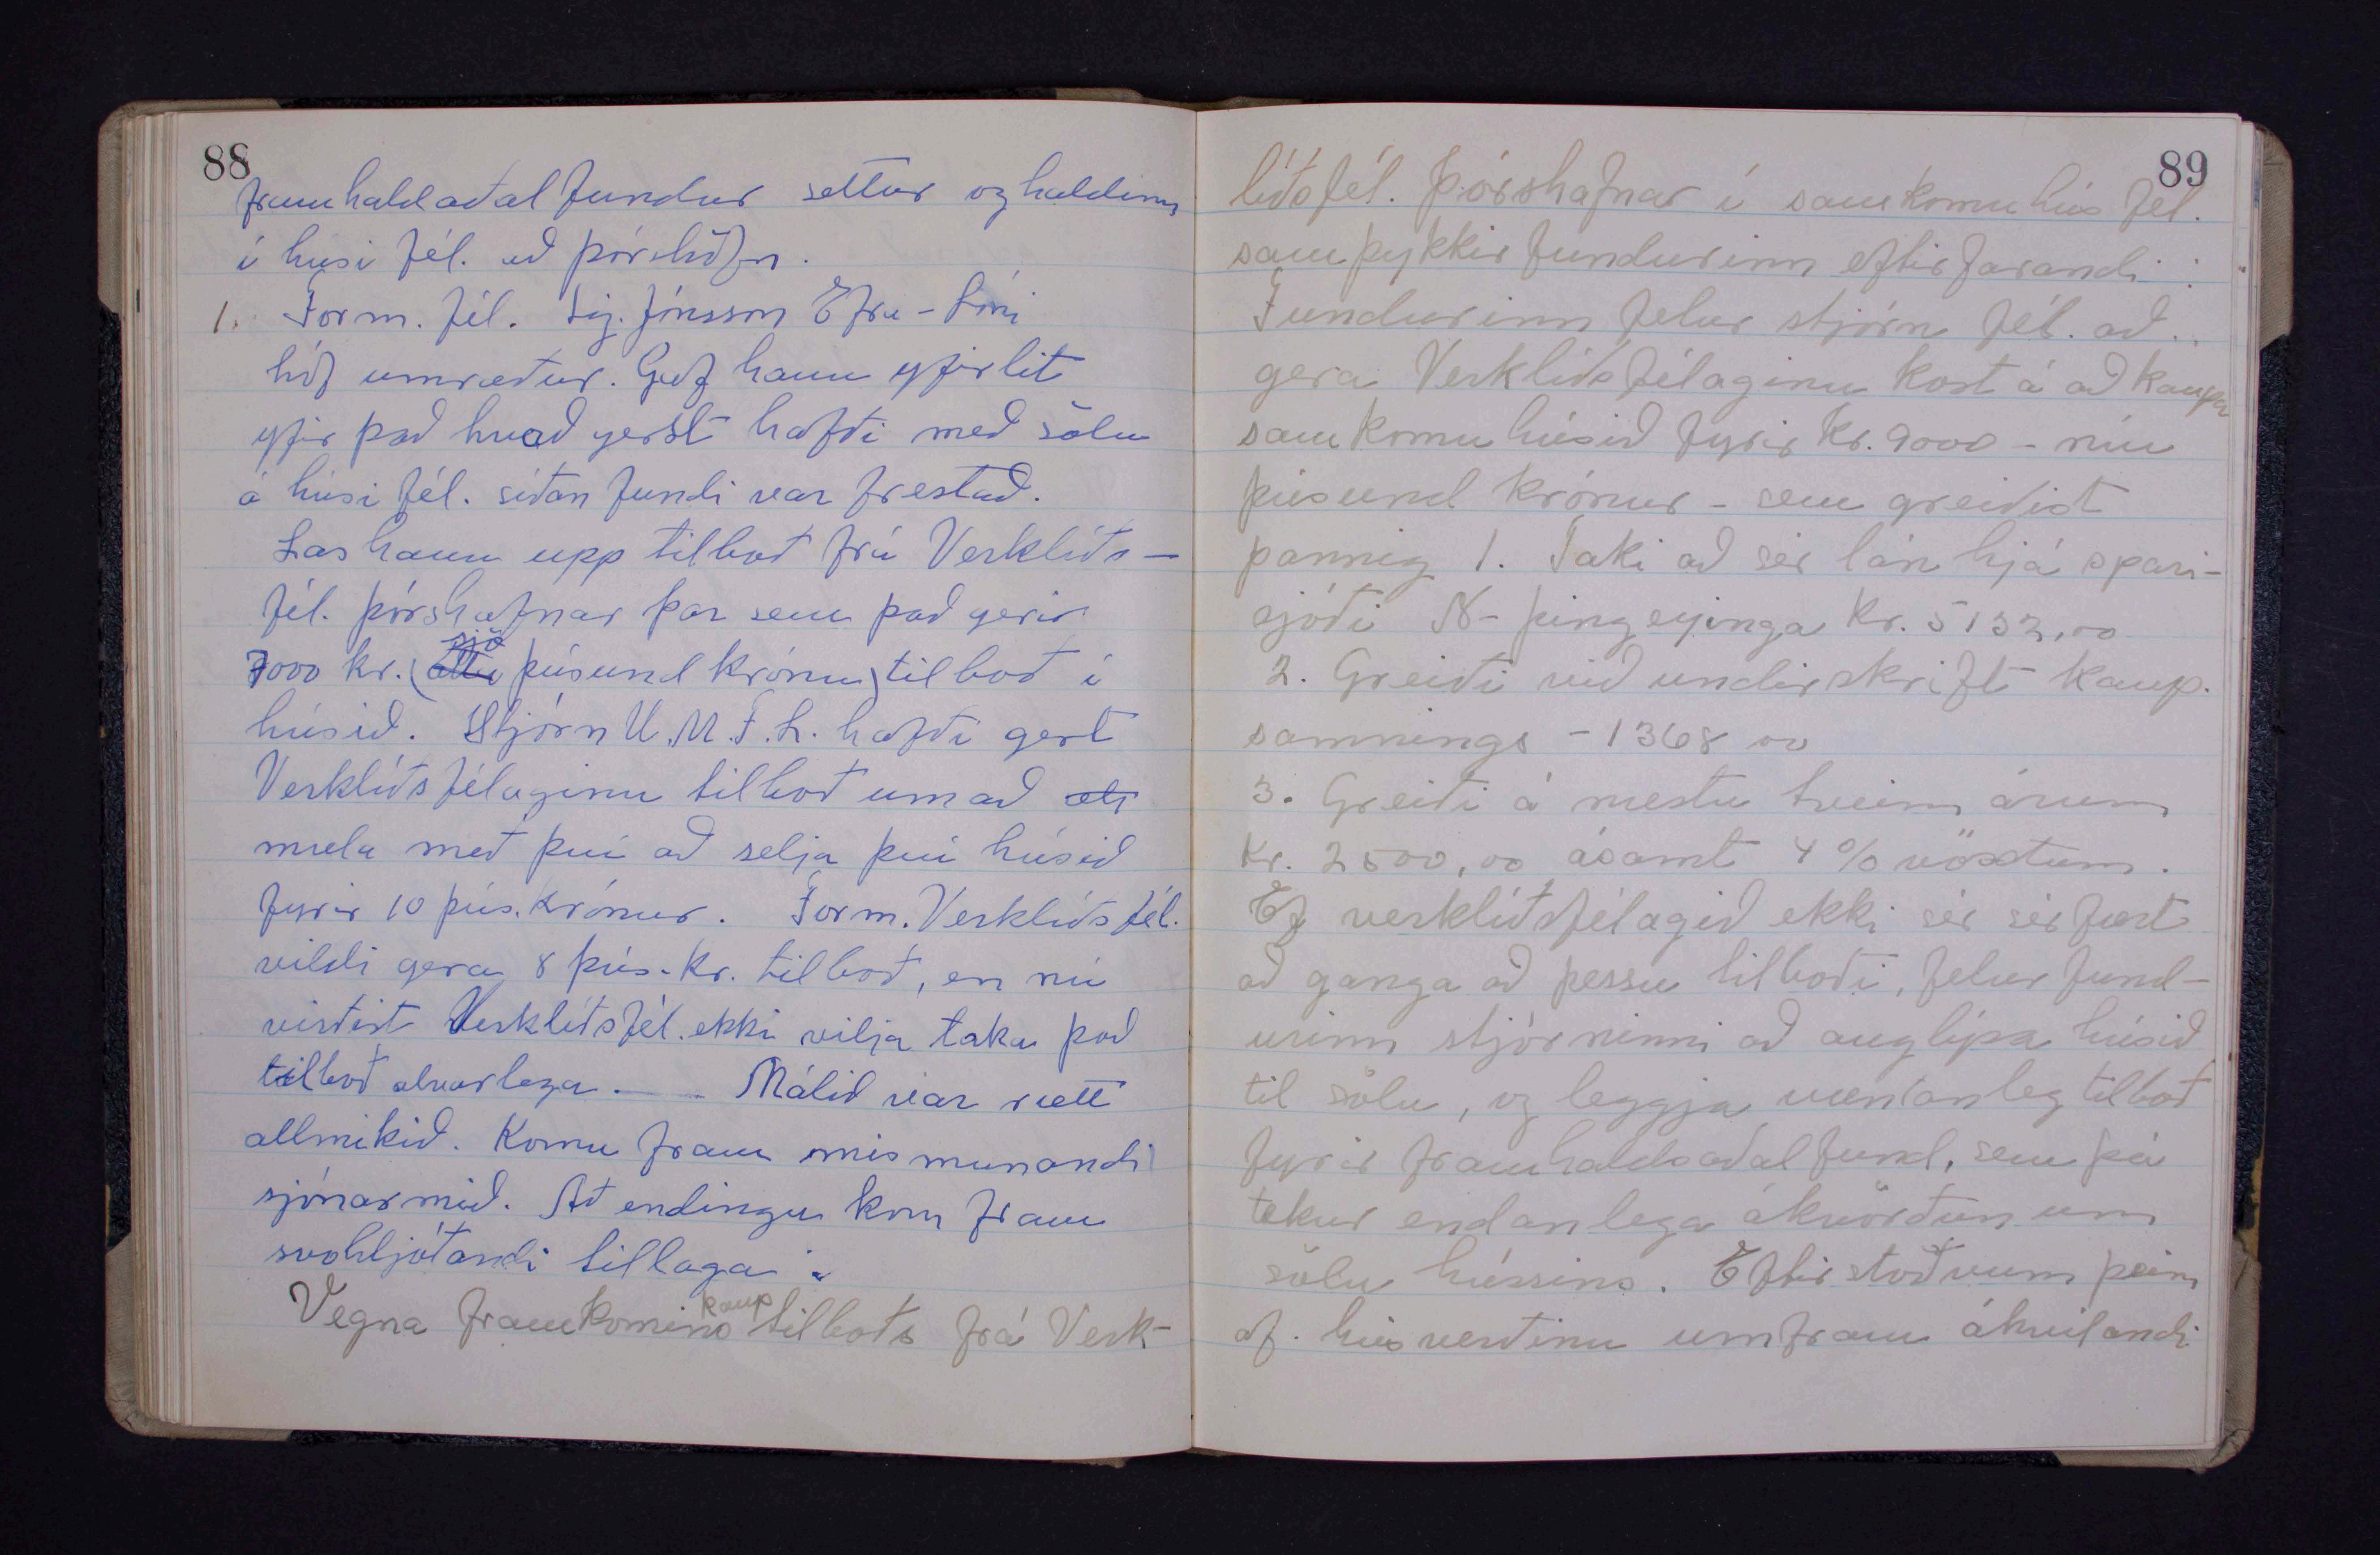 88
framhaldaðalfundur settur og haldinn
í húsi fél. að Þórshöfn.
1. Form. fél. Sig. Jónsson Efra-Lóni
hóf umræður. Gaf hann yfirlit
yfir það hvað gerst hafði með sölu
á húsi fél. síðan fundi var frestað.
Las hann upp tilboð frá Verklíðs-
fél. Þórshafnar þar sem það gerir
7000 kr. (átta sjö þúsund krónu) tilboð í
húsið. Stjórn U.M.F.L. hafði gert
Verklíðsfélaginu tilboð um að
mæla með því að selja því húsið
fyrir 10 þús. krónur. Form. Verklíðsfél.
vildi gera 8 þús. kr. tilboð, en nú
virðist Verklíðsfél. ekki vilja taka það
tilboð alvarlega. — Málið var rætt
allmikið. Komu fram mismunandi
sjónarmið. Að endingu kom fram
svohljóðandi tillaga:
Vegna framkomins kauptilboðs frá Verk-
89
líðsfél. Þórshafnar í samkomuhús fél.
samþykkir fundurinn eftirfarandi:
Fundurinn felur stjórn fél. að
gera Verklíðsfélaginu kost á að kaupa
samkomuhúsið fyrir kr. 9000 - níu
þúsund krónur - sem greiðist
þannig 1. Taki að sér lán hjá spari-
sjóði N-Þingeyinga kr. 5132,00
2. Greiði við undirskrift kaup-
samnings - 1368 00
3. Greiði á næstu tveim árum
kr. 2500,00 ásamt 4% vöxtum.
Ef verklíðsfélagið ekki sér sér fært
að ganga að þessu tilboði, felur fund-
urinn stjórninni að auglýsa húsið
til sölu, og leggja væntanleg tilboð
fyrir framhaldsaðalfund, sem þá
tekur endanlega ákvörðun um
sölu hússins. Eftirstöðvum þeim
af húsverðinu umfram áhvílandi